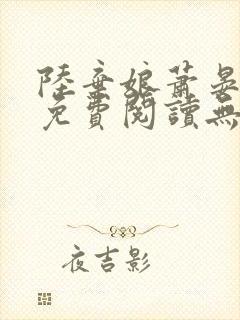 陸棄娘蕭晏
免費閱讀無
夜吉影